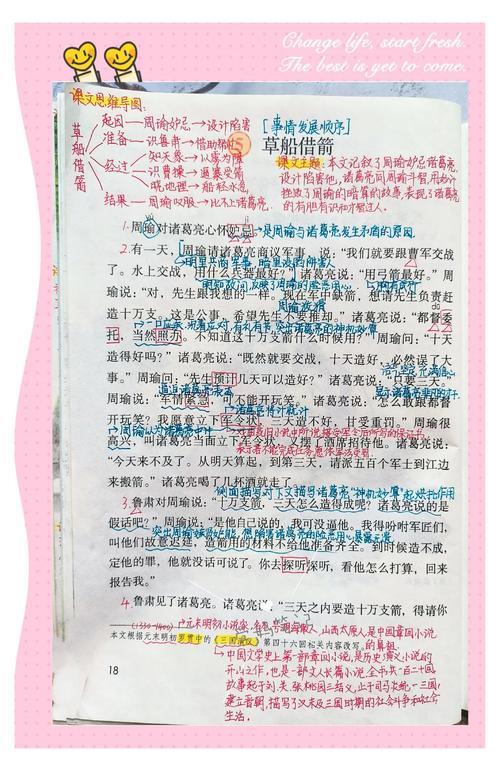 Change life, start fresh.
The best is yet to come.
课文思维导图:
草船借箭
起因—周瑜妒忌→设计陷害
准备—识鲁肃→借助帮忙
经过
知天象→以雾为障
识曹操→逼寨受箭
晓地理→船轻水急
结果—周瑜叹服→比不上诸葛亮
[事情发展顺序]
5
草船借箭
课文主题:本文记叙了周瑜妒忌诸葛亮,
设计陷害他,诸葛亮同周瑜斗智,用妙计
挫败了周瑜的暗算的故事,表现了诸葛亮
的有胆有识和才智过人。
1.周瑜对诸葛亮心怀妒忌。
→是周瑜与诸葛亮发生矛盾的原因
2.有一天,周瑜请诸葛亮商议军事,说:“我们就要跟曹军交战
了。水上交战,用什么兵器最好?”诸葛亮说:“用弓箭最好。”周
瑜说:“对,先生跟我想的一样。现在军中缺箭,想请先生负责赶
造十万支。这是公事,希望先生不要推却。”诸葛亮说:“都督委
托,当然照办。不知道这十万支箭什么时候用?”周瑜问:“十天
造得好吗?”诸葛亮说:“既然就要交战,十天造好,必然误了大
事。”周瑜问:“先生预计几天可以造好?”诸葛亮说:“只要三天。”
周瑜说:“军情紧急,可不能开玩笑。”诸葛亮说:“怎么敢跟都督
开玩笑?我愿意立下军令状,三天造不好,甘受重罚。”周瑜很
高兴,叫诸葛亮当面立下军令状,又摆了酒席招待他。诸葛亮说:
“今天来不及了。从明天算起,到第三天,请派五百个军士到江边
来搬箭。”诸葛亮喝了几杯酒就走了。
侧面描写,对下文描写诸葛亮“神机妙算”起烘托作用
3.鲁肃对周瑜说:“十万支箭,三天怎么造得成呢?诸葛亮说的是
假话吧?”周瑜说:“是他自己说的,我可没逼他。我得吩咐军匠们,
叫他们故意迟延,造箭用的材料不给他准备齐全。到时候造不成,
定他的罪,他就没话可说了。你去探听探听,看他怎么打算,回来
报告我。”
4.鲁肃见了诸葛亮。诸葛亮说:“三天之内要造十万支箭,得请你
(1330-1400)
山西太原人,是中国章回小说
的鼻祖。
本文根据元末明初罗贯中的《三国演义》第四十六回相关内容改写。
→中国文学史上第一部章回小说,是历史演义小说的
开山之作,也是一部文人长篇小说,全书共一百二十回
故事起于刘、关、张桃园三结义,止于司马炎统一三国,
建立晋朝,描写了汉末及三国时期的社会斗争和社会
生活。
18